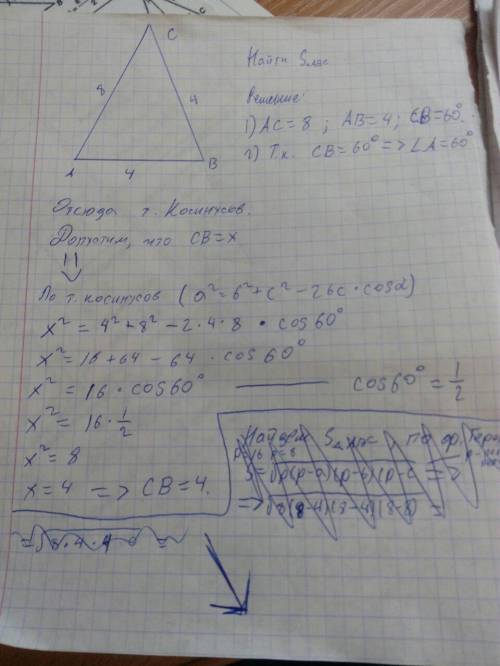 C
8
4
A
4
B
Найти SABC
Решение:
1) AC=8 ; AB=4; CB=60°.
2) Т.к. CB=60° => ∠A=60°
Отсюда т. Косинусов.
Допустим, что CB=x
По т. косинусов (a²=b²+c²-2bc·cosα)
x²=4²+8²-2·4·8·cos60°
x²=16+64-64·cos60°
x²=16·cos60° — cos60°=1/2
x²=16·1/2
x²=8
x=4 => CB=4.
Найдем S по ф.
p=16 p=8
S=√p(p-a)(p-b)(p-c =>
=> √8(8-4)(8-4)(8-8) =
=√8·4·4·0 =